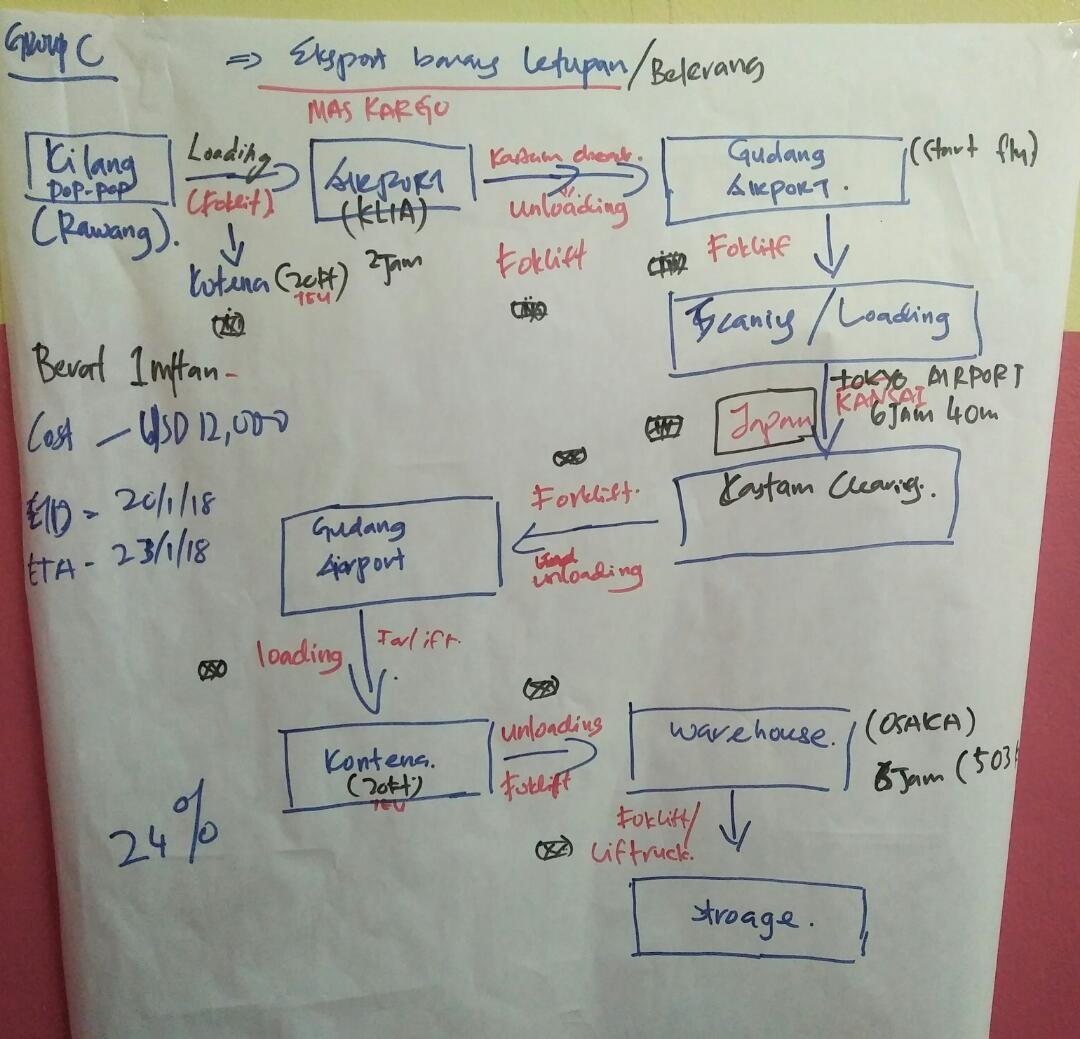 Group C
⇒ Eksport barang letupan/Belerang
MAS KARGO
Kilang
POP-POP
(Rawang).
Loading
(Foklit)
Kotena (20ft)
TEU
AIRPORT
(KLIA)
2Jam
Kastam check.
unloading
Foklift
Gudang
AIRPORT.
(Start fly)
Foklift
Scaning / Loading
Berat 1 m/tan -
Cost - USD 12,000
ETD - 20/1/18
ETA - 23/1/18
Japan
TOKYO AIRPORT
KANSAI
6Jam 40m
Kastam Clearing.
Forklift.
unloading
Gudang
Airport
loading
Forlift.
Kontena.
(20ft)
TEU
unloading
Foklift
Warehouse.
(OSAKA)
6Jam (503
Foklift/
Liftruck.
Stroage.
24%